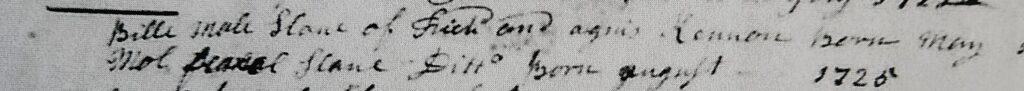 Bille male Slave of Richd and agnis Kennon born May
Mol femal Slave Ditto Born august 1725